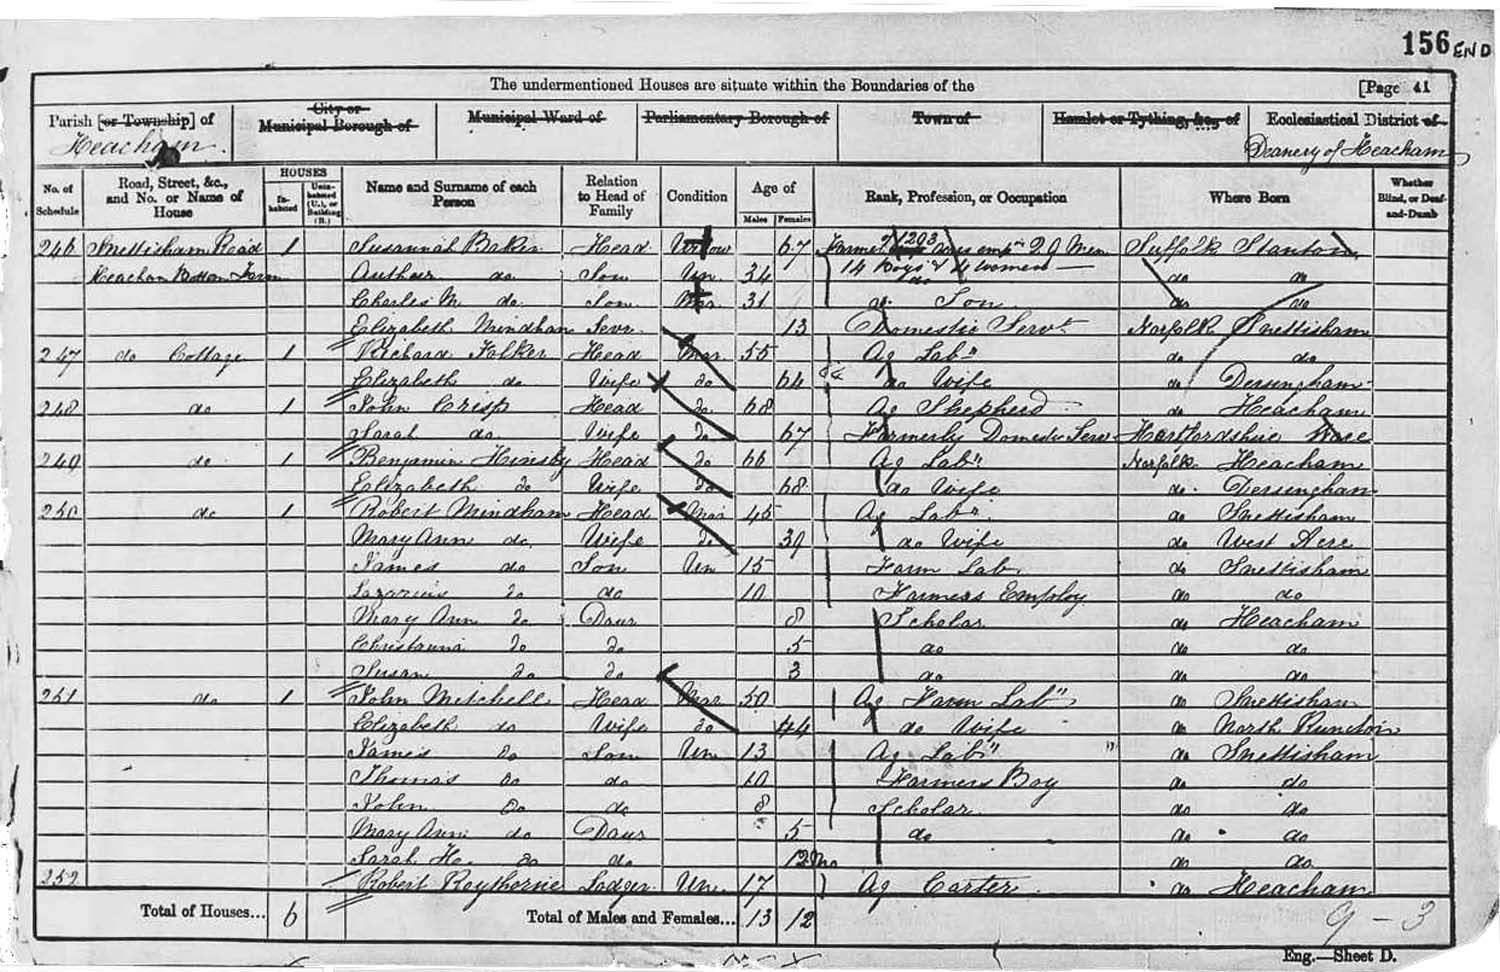 156 END
The undermentioned Houses are situate within the Boundaries of the [Page 41
Parish [or Township] of City or Municipal Borough of Municipal Ward of Parliamentary Borough of Town of Hamlet or Tything, &c., of Ecclesiastical District of
Heacham. Deanery of Heacham
No. of Schedule Road, Street, &c., and No. or Name of House HOUSES Inhabited Uninhabited (U.), or Building (B.) Name and Surname of each Person Relation to Head of Family Condition Age of Males Females Rank, Profession, or Occupation Where Born Whether Blind, or Deaf-and-Dumb
246 Snettisham Road 1 Susannah Baker Head Widow 67 Farmer 1203 Acres emp 29 Men Suffolk Stanton
Heacham Bottom Farm Arthur do Son Un 34 14 Boys & 4 Women do do do
Charles M. do Son Mar 31 do Son do do
Elizabeth Mindham Serv. 13 Domestic Servt Norfolk Snettisham
247 do Cottage 1 Richard Folker Head Mar 55 Ag Lab do do
Elizabeth do Wife do 64 do Wife do Dersingham
248 do 1 John Crisp Head do 68 Ag Shepherd do Heacham
Sarah do Wife do 67 Formerly Domestic Serv Hertfordshire Ware
249 do 1 Benjamin Hinsby Head do 66 Ag Lab" Norfolk Heacham
Elizabeth do Wife do 68 do Wife do Dersingham
250 do 1 Robert Mindham Head Mar 45 Ag Lab" do Snettisham
Mary Ann do Wife do 39 do Wife do West Acre
James do Son Un 15 Farm Lab do Snettisham
Lazarius do do 10 Farmers Employ do do
Mary Ann do Daur 8 Scholar do Heacham
Christanna do do 5 do do do
Susan do do 3 do do do
251 do 1 John Mitchell Head Mar 50 Ag Farm Lab" do Snettisham
Elizabeth do Wife do 44 do Wife do North Runcton
James do Son Un 13 Ag Lab" " do Snettisham
Thomas do do 10 Farmers Boy do do
John do do 8 Scholar do do
Mary Ann do Daur 5 do do do
Sarah H. do do 12 Mo do do
252 Robert Raythorne Lodger Un 17 Ag Carter do Heacham
Total of Houses... 6 Total of Males and Females... 13 12 9 - 3
Eng.—Sheet D.